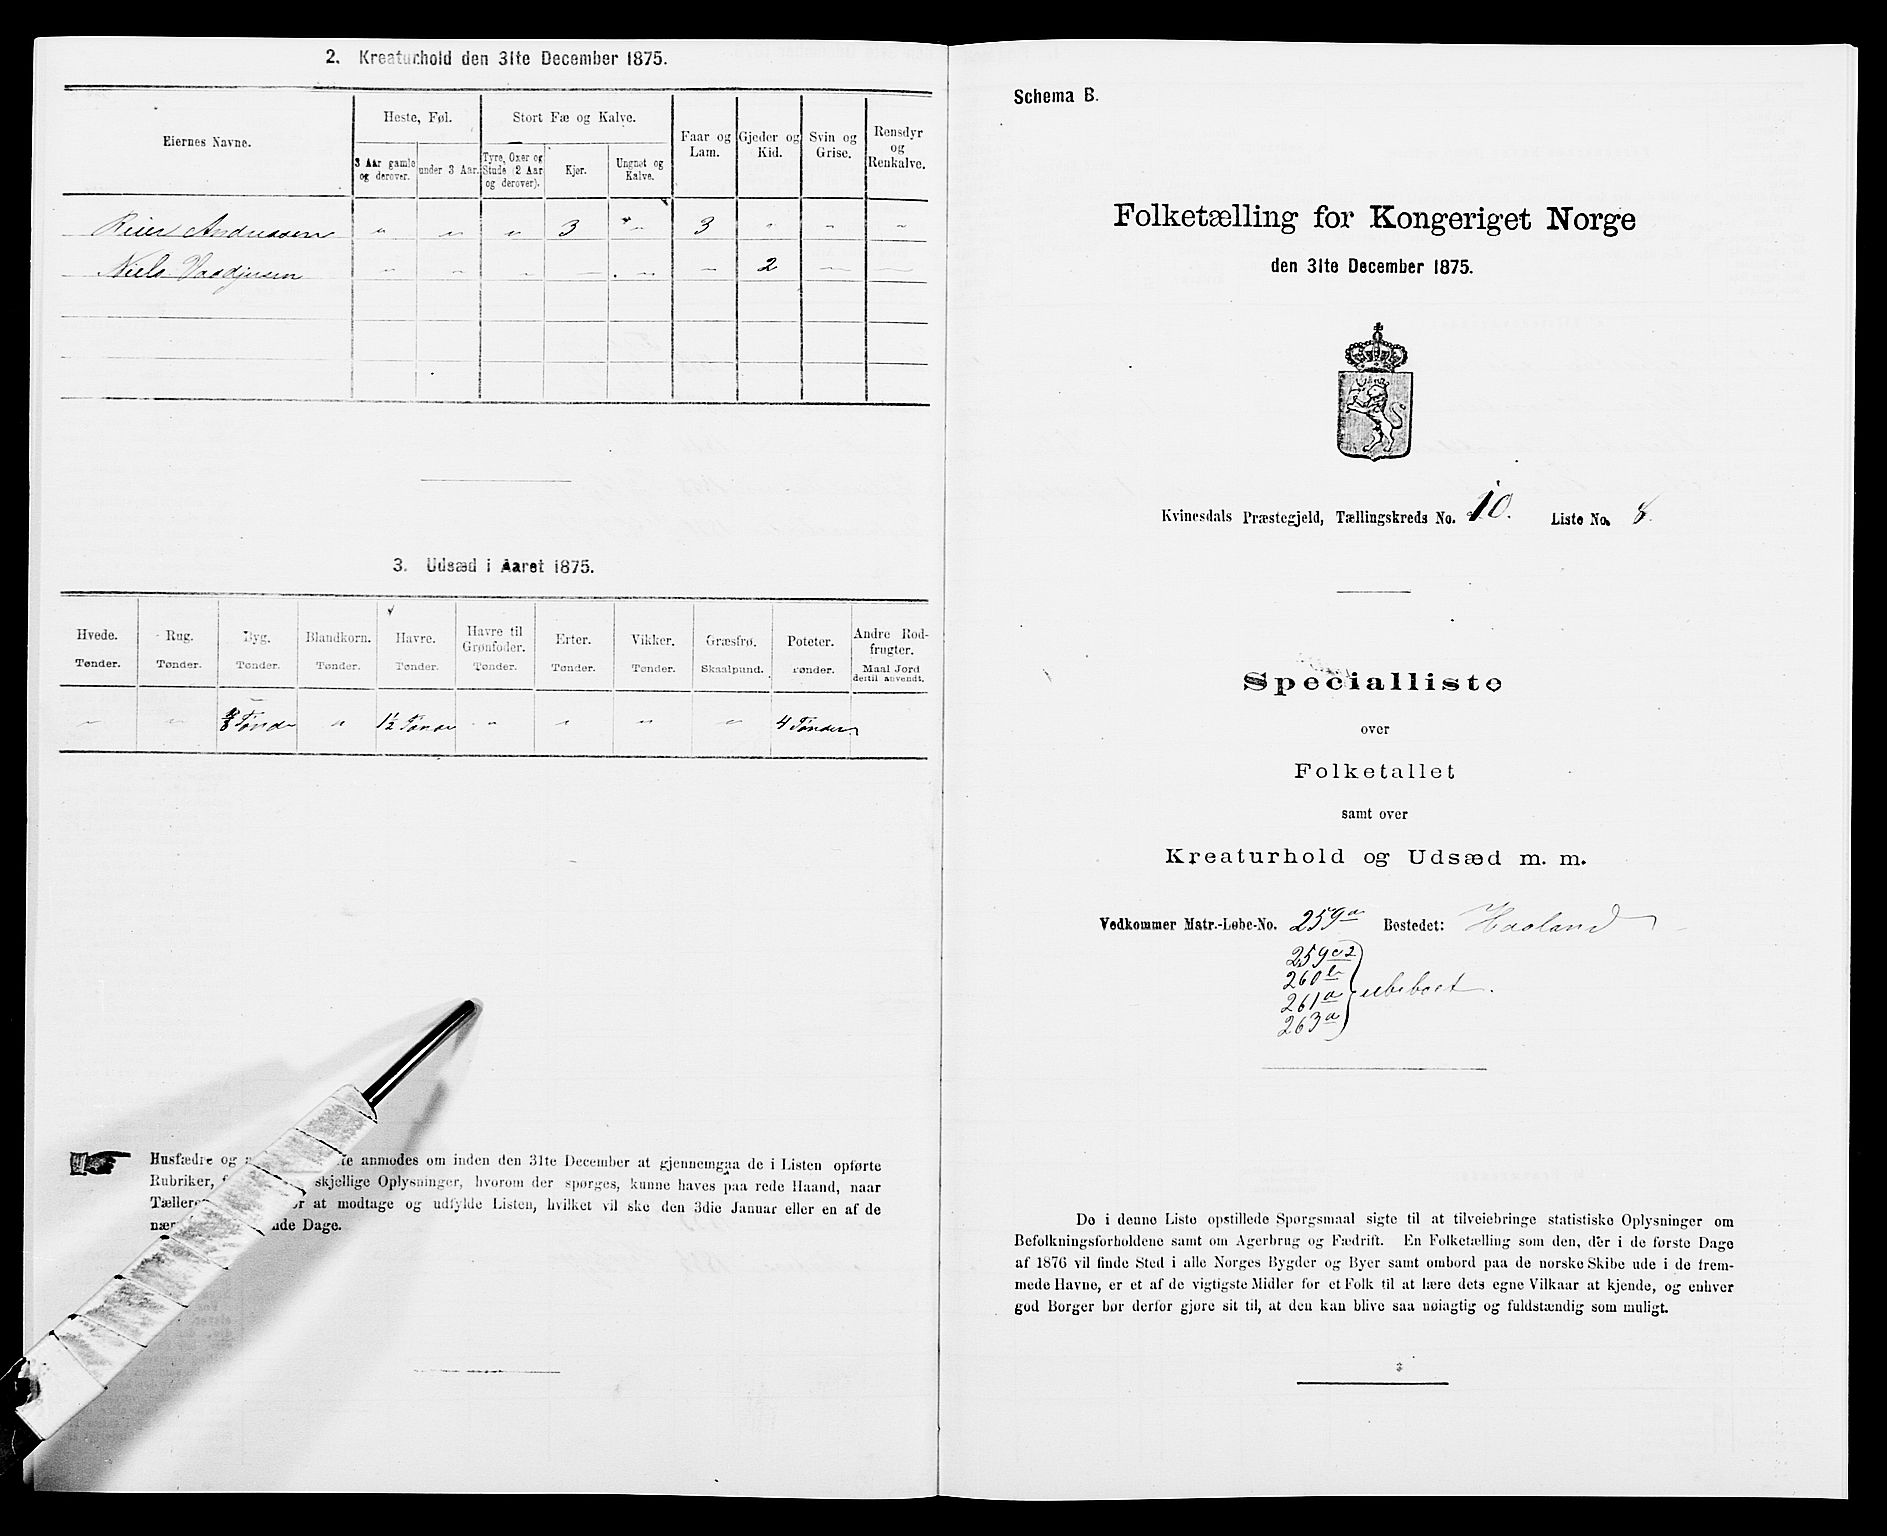 2. Kreaturhold den 31te December 1875.
Eiernes Navne.
Heste, Føl.
Stort Fæ og Kalve.
Faar og Lam.
Gjeder og Kid.
Svin og Grise.
Rensdyr og Renkalve.
3 Aar gamle og derover.
under 3 Aar.
Tyre, Oxer og Stude (2 Aar og derover).
Kjør.
Ungnøt og Kalve.
Reier Andreassen " " " 3 " 3 " " "
Niels 2
3. Udsæd i Aaret 1875.
Hvede. Tønder.
Rug. Tønder.
Byg. Tønder.
Blandkorn. Tønder.
Havre. Tønder.
Havre til Grønfoder. Tønder.
Erter. Tønder.
Vikker. Tønder.
Græsfrø. Skaalpund.
Poteter. Tønder.
Andre Rodfrugter. Maal Jord dertil anvendt.
" " Tønde " 1½ Tønde " " " " 4 Tønder
Husfædre og anmodes om inden den 31te December at gjennemgaa de i Listen opførte
Rubriker, skjellige Oplysninger, hvorom der spørges, kunne haves paa rede Haand, naar
at modtage og udfylde Listen, hvilket vil ske den 3die Januar eller en af de
Dage.
Schema B.
Folketælling for Kongeriget Norge
den 31te December 1875.
Kvinesdals Præstegjeld, Tællingskreds No. 10. Liste No. 8.
Specialliste
over
Folketallet
samt over
Kreaturhold og Udsæd m. m.
Vedkommer Matr.-Løbe-No. 259a Bostedet: Haaland
259c2
260b
261a ubeboet.
263a
De i denne Liste opstillede Spørgsmaal sigte til at tilveiebringe statistiske Oplysninger om
Befolkningsforholdene samt om Agerbrug og Fædrift. En Folketælling som den, der i de første Dage
af 1876 vil finde Sted i alle Norges Bygder og Byer samt ombord paa de norske Skibe ude i de frem-
mede Havne, er et af de vigtigste Midler for et Folk til at lære dets egne Vilkaar at kjende, og enhver
god Borger bør derfor gjøre sit til, at den kan blive saa nøiagtig og fuldstændig som muligt.